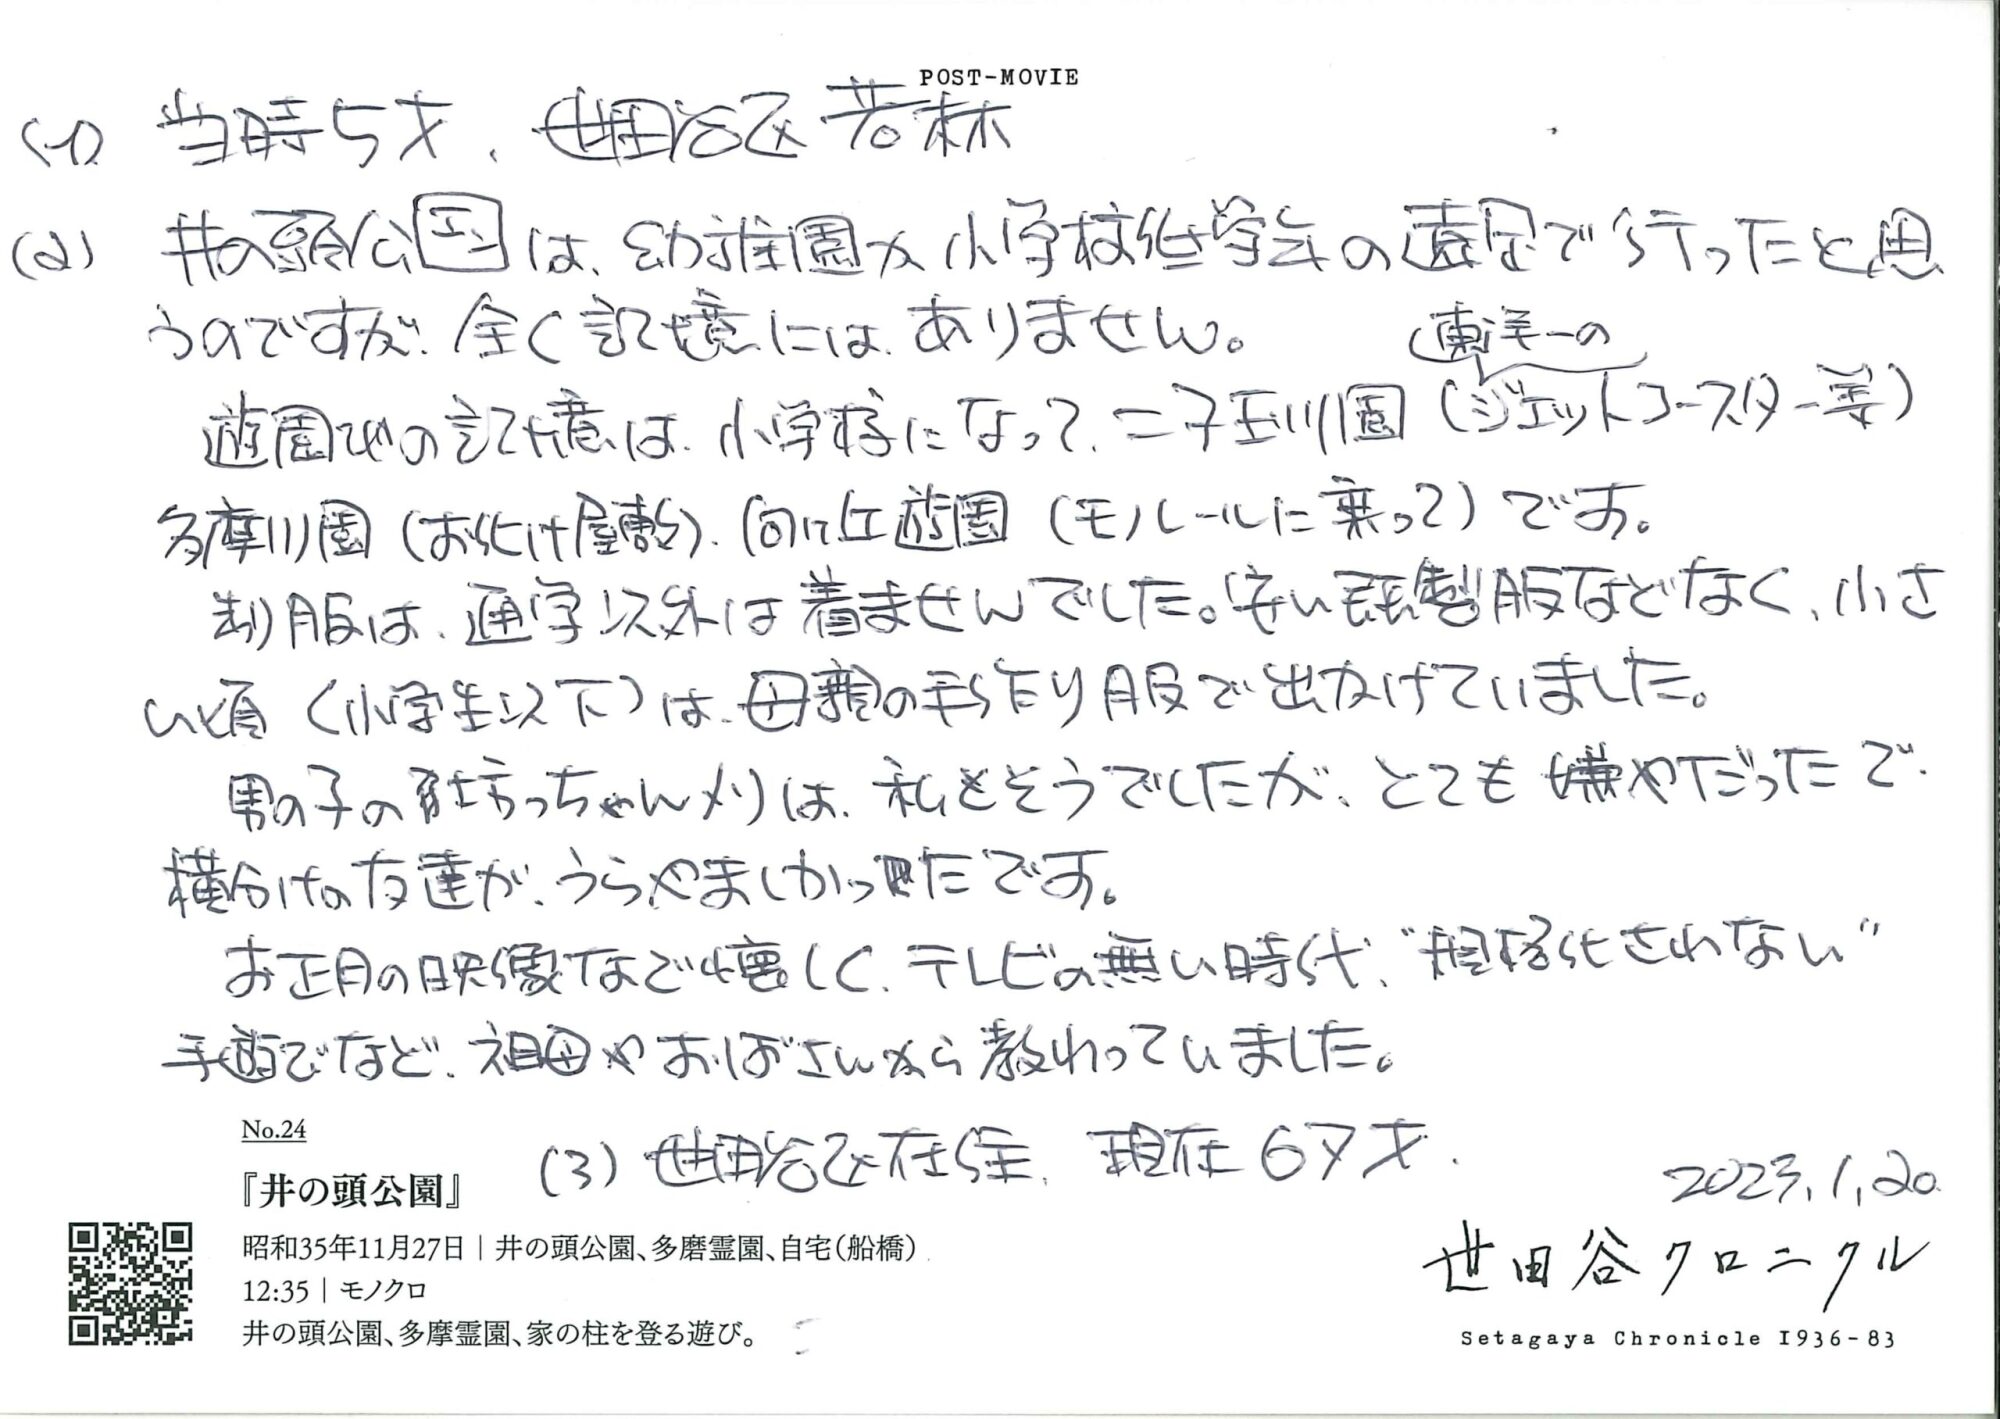 POST-MOVIE
(1) 当時5才、世田谷区若林
(2) 井の頭公園は、幼稚園か小学校低学年の遠足で行ったと思
うのですが、全く記憶には、ありません。
東洋一の
遊園地の記憶は、小学校になって、二子玉川園(ジェットコースター等)
多摩川園(お化け屋敷)、向ケ丘遊園(モノレールに乗って)です。
制服は、通学以外は着ませんでした。安い既製服などなく、小さ
い頃(小学生以下)は、母親の手作り服で出かけていました。
男の子の坊っちゃん刈りは、私もそうでしたが、とても嫌やだったで、
横分けの友達が、うらやましかったです。
お正月の映像など懐しく、テレビの無い時代、“規格化されない”
手遊びなど、祖母やおばさんから教わっていました。
(3) 世田谷区在住、現在67才.
2023.1.20
No.24
『井の頭公園』
昭和35年11月27日|井の頭公園、多磨霊園、自宅(船橋)
12:35|モノクロ
井の頭公園、多摩霊園、家の柱を登る遊び。
世田谷クロニクル
Setagaya Chronicle 1936-83